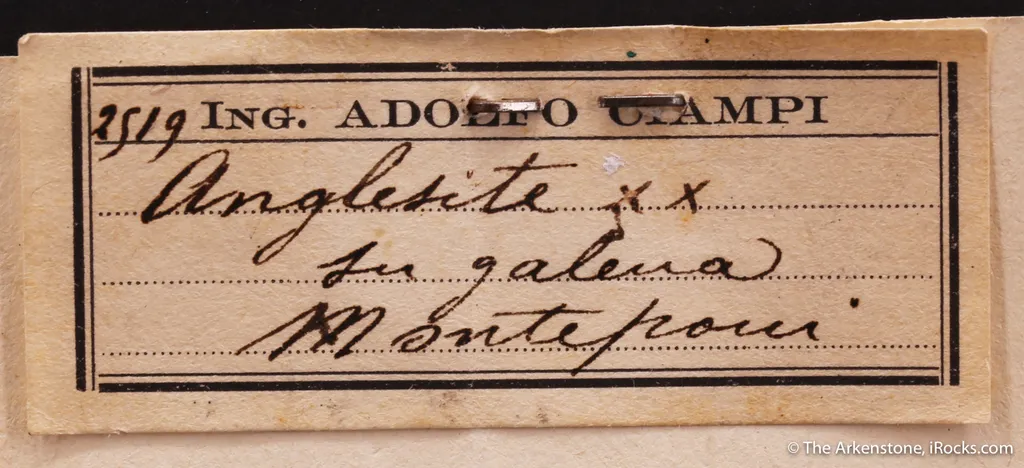 2519 ING. ADOLFO CIAMPI
Anglesite xx
su galena
Monteponi
© The Arkenstone, iRocks.com